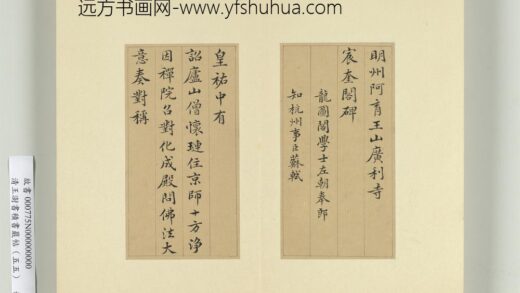 远方书画网-www.yfshuhua.com
明州阿育王山廣利寺
宸奎閣碑
龍圖閣學士左朝奉郎
知杭州事臣蘇軾
皇祐中有
詔廬山僧懷璉住京師十方淨
因禪院召對化成殿問佛法大
意奏對稱
故書000775N000000000
清王澍書積書巖帖(五五)